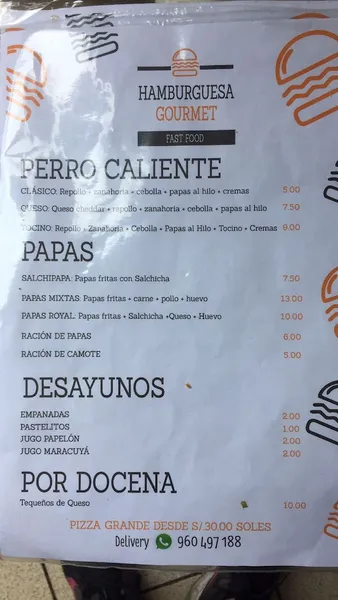 HAMBURGUESA
GOURMET
FAST FOOD
PERRO CALIENTE
CLÁSICO: Repollo + zanahoria + cebolla + papas al hilo + cremas 5.00
QUESO: Queso cheddar + repollo + zanahoria + cebolla + papas al hilo 7.50
TOCINO: Repollo + Zanahoria + Cebolla + Papas al Hilo + Tocino + Cremas 9.00
PAPAS
SALCHIPAPA: Papas fritas con Salchicha 7.50
PAPAS MIXTAS: Papas fritas + carne + pollo + huevo 13.00
PAPAS ROYAL: Papas fritas + Salchicha +Queso + Huevo 10.00
RACIÓN DE PAPAS 6.00
RACIÓN DE CAMOTE 5.00
DESAYUNOS
EMPANADAS 2.00
PASTELITOS 1.00
JUGO PAPELÓN 2.00
JUGO MARACUYÁ 2.00
POR DOCENA
Tequeños de Queso 10.00
PIZZA GRANDE DESDE S/.30.00 SOLES
Delivery 960 497 188